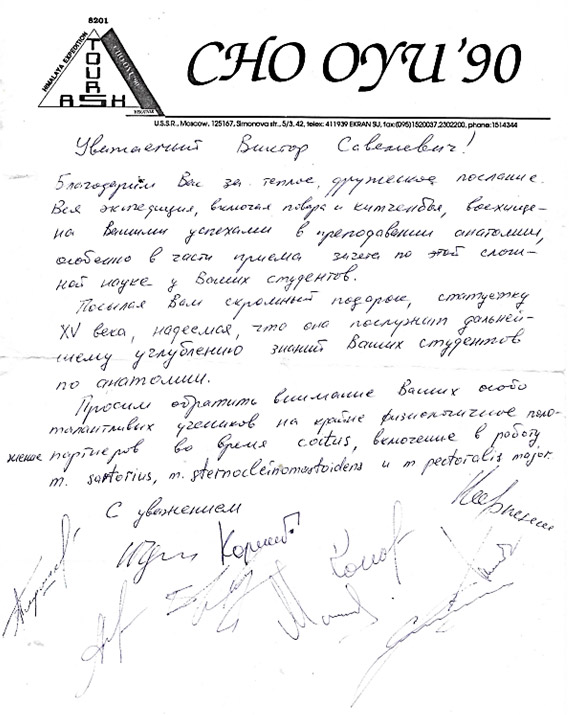 8201
HIMALAYA EXPEDITION
TOUR
ASH
CHO OYU '90
CHO OYU '90
U.S.S.R., Moscow, 125167, Simonova str., 5/3, 42, telex: 411939 EKRAN SU, fax:(095)1520037,2302200, phone:1514344
Уважаемый Виктор Савельевич!
Благодарим Вас за теплое, дружеское послание.
Вся экспедиция, включая повара и китченбоя, восхище-
на Вашими успехами в преподавании анатомии,
особенно в части приема зачета по этой слож-
ной науке у Ваших студентов.
Посылая Вам скромный подарок, статуэтку
XV века, надеемся, что она послужит дальней-
шему углублению знаний Ваших студентов
по анатомии.
Просим обратить внимание Ваших особо
талантливых учеников на крайне физиологичное поло-
жение партнеров во время coitus, включение в работу
m. sartorius, m. sternocleinomastoideus и m pectoralis major.
С уважением